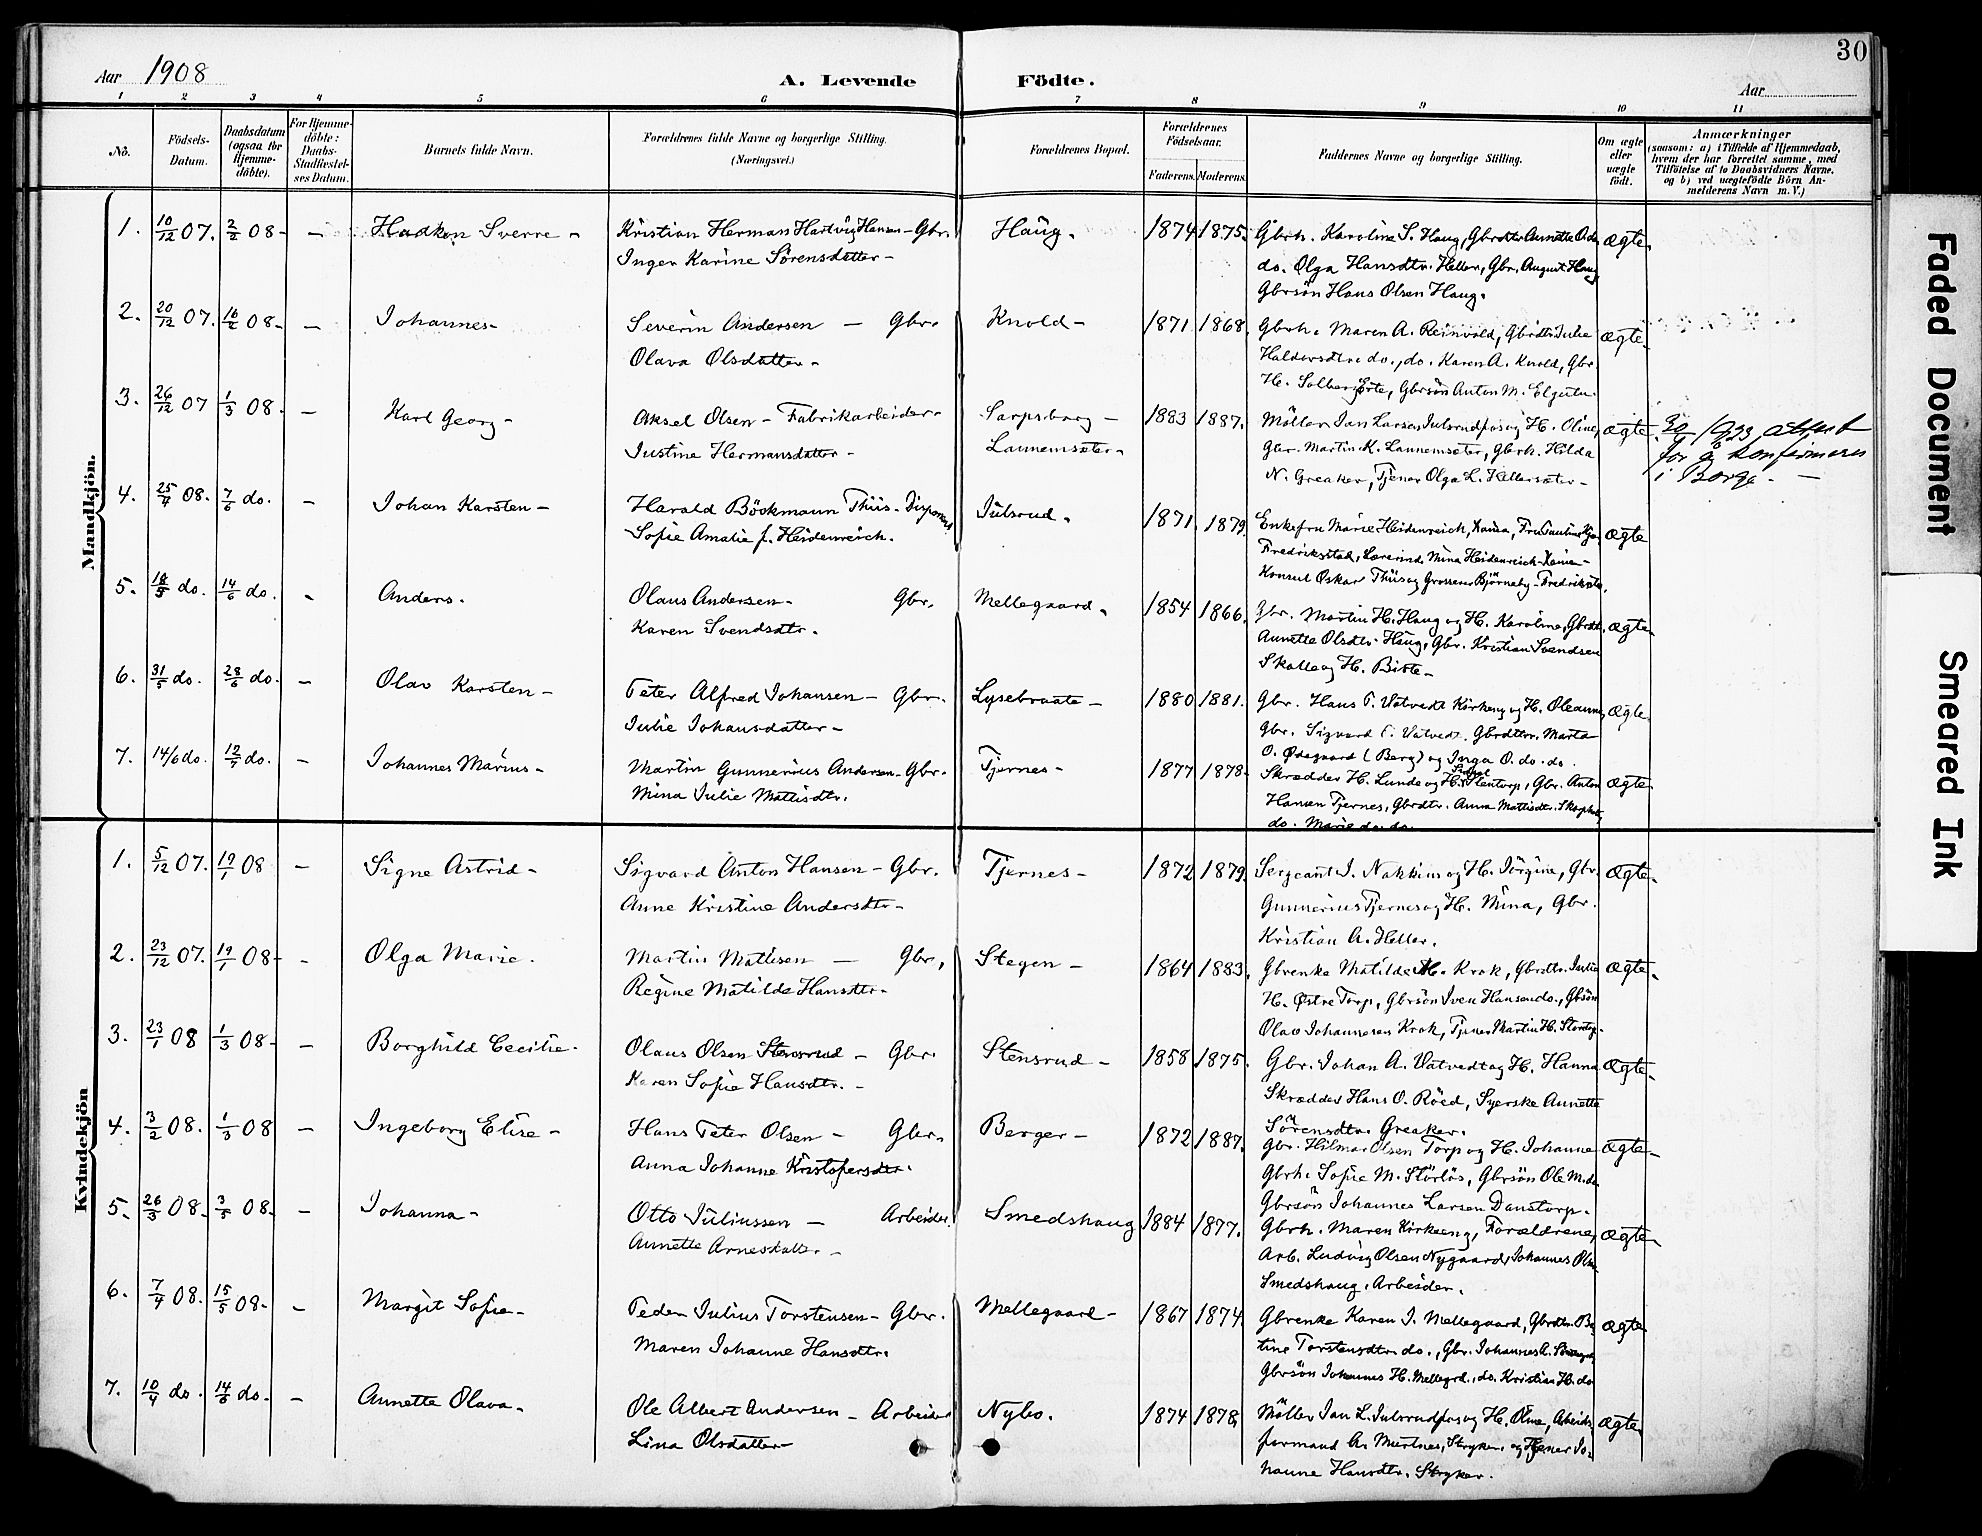 30
Aar 1908
A. Levende Födte.
Aar
1 2 3 4 5 6 7 8 9 10 11
No.
Födsels-Datum.
Daabsdatum (ogsaa for Hjemme-döbte).
For Hjemme-döbte: Daabs-Stadfæstel-ses Datum.
Barnets fulde Navn.
Forældrenes fulde Navne og borgerlige Stilling. (Næringsvei.)
Forældrenes Bopæl.
Forældrenes Födselsaar.
Faderens. Moderens.
Faddernes Navne og borgerlige Stilling.
Om ægte eller uægte födt.
Anmærkninger
(saasom: a) i Tilfælde af Hjemmedaab, hvem der har forrettet samme, med Tilföielse af to Daabsvidners Navne, og b) ved uægtefödte Börn An-melderens Navn m. V.)
Mandkjön.
1. 10/12 07. 2/2 08 - - Haakon Sverre - Kristian Herman Hartvig Hansen - Gbr. Haug. 1874 1875. Gbrh. Karoline S. Haug, Gbrdtr Annette O. do ægte.
Inger Karine Sörensdatter - do. Olga Hansdtr. Heller, Gbr. August Haug
Gbrsön Hans Olsen Haug.
2. 20/12 07. 16/2 08 - - Johannes - Severin Andersen - Gbr. Knold - 1871 1868. Gbrh. Maren A. Reinvold, Gbrdtr Julie ægte -
Olava Olsdatter - Haldorsdtr. do., do. Karen A. Knold, Gbr.
H. Solberg, Gbrsön Anton M.
3. 26/12 07 1/3 08. - Karl Georg - Aksel Olsen - Fabrikarbeider - Sarpsborg - 1883 1887. Möller Jan Larsen Julsrudfos og H. Oline, ægte 30/9 1923 attest
Justine Hermansdatter - Lannemsæter - Gbr. Martin K. Lannemsæter, Gbrh. Hilda for å konfirmeres
N. Greaker, Tjener Olga L. Hellersæter - i Borge. -
4. 25/4 08. 7/6 do. - Johan Karsten - Harald Böckmann Thiis - Disponent Julsrud. 1871. 1879. Enkefru Marie Heidenreich, ægte
Sofie Amalie f. Heidenreich. Fredrikstad, Lærerinde Mina Heidenreich
Konsul Oskar Thiis og Grosserer Björneby - Fredrikstad.
5. 18/5 do. 14/6 do. - Anders. Olaus Andersen - Gbr. Mellegaard. 1854 1866. Gbr. Martin H. Haug og H. Karoline, Gbrdtr. ægte
Karen Svendsdtr. Annette Olsdtr. Haug, Gbr. Kristian Svendsen
Skolle og H. Birte -
6. 31/5 do. 28/6 do. - Olav Karsten - Peter Alfred Johansen - Gbr. Lysebraate - 1880 1881. Gbr. Hans P. Vatvedt Kirkeng og H. Oleanna, ægte.
Julie Johansdatter - Gbr. Sigvard P. Vatvedt. Gbrdtr. Marta
O. Ødegaard (Berg) og Inga O. do. do.
7. 14/6 do. 12/7 do. - Johannes Marius - Martin Gunnerius Andersen - Gbr. Tjernes - 1877 1878. Skrædder H. Lunde og H. Slentorp, Gbr. Anton ægte.
Mina Julie Mattisdtr. Hansen Tjernes, Gbrdtr. Anna Mattisdtr.
do. Marie do. do.
Kvindekjön
1. 5/12 07. 19/1 08 - Signe Astrid - Sigvard Anton Hansen - Gbr. Tjernes - 1872 1879. Sergeant J. Nakkim og H. Jörgine, Gbr. ægte.
Anne Kristine Andersdtr - Gunnerius Tjernes og H. Mina, Gbr.
Kristian A. Heller.
2. 23/12 07. 19/1 08 - - Olga Marie. Martin Mattisen - Gbr, Stegen - 1864 1883. Gbrenke Matilde M. Krok, Gbrdtr. Julie ægte -
Regine Matilde Hansdtr - H. Østre Torp, Gbrsön Iver Hansen do., Gbrsön
Olav Johannesen Krok, Tjener Martin H.
3. 23/1 08 1/3 08 - - Borghild Cecilie - Olaus Olsen Stensrud - Gbr. Stensrud - 1858 1875. Gbr. Johan A. Vatvedt og H. Hanna ægte -
Karen Sofie Hansdtr. - Skrædder Hans O. Röed, Syerske Annette
Sörensdtr. Greaker.
4. 3/2 08. 1/3 08 - Ingeborg Elise - Hans Peter Olsen - Gbr. Berger - 1872 1887. Gbr. Hilmar Olsen Torp og H. Johanne ægte -
Anna Johanne Kristofersdtr. Gbrh. Sofie M. Störlös, Gbrsön Ole M. do
Gbrsön Johannes Larsen Danstorp.
5. 26/3 08. 3/5 08 - - Johanna - Otto Juliussen - Arbeider. Smedshaug 1884 1877. Gbrh. Maren Kirkeeng, Forældrene, ægte
Annette Arnesdatter - Arb. Ludvig Olsen Nygaard, Johannes Olsen
Smedshaug, Arbeider.
6. 7/4 08. 15/5 08 - - Margit Sofie - Peder Julius Torstensen - Gbr. Mellegaard - 1867 1874. Gbrenke Karen J. Mellegaard, Gbrdtr. Ber ægte
Maren Johanne Hansdtr. tine Torstensdtr. do., Gbr. Johannes A.
Gbrsön Johannes H. Mellegrd., do. Kristian H. do
7. 10/4 do. 14/6 do. - Annette Olava - Ole Albert Andersen - Arbeider Nybo. 1874 1878. Möller Jan L. Julsrudfos og H. Oline, Arbeids- ægte
Lina Olsdatter - formand A. Murtnes, Stryker. og Tjener Jo-
hanne Hansdtr. Stryker.
Faded Document
Smeared Ink